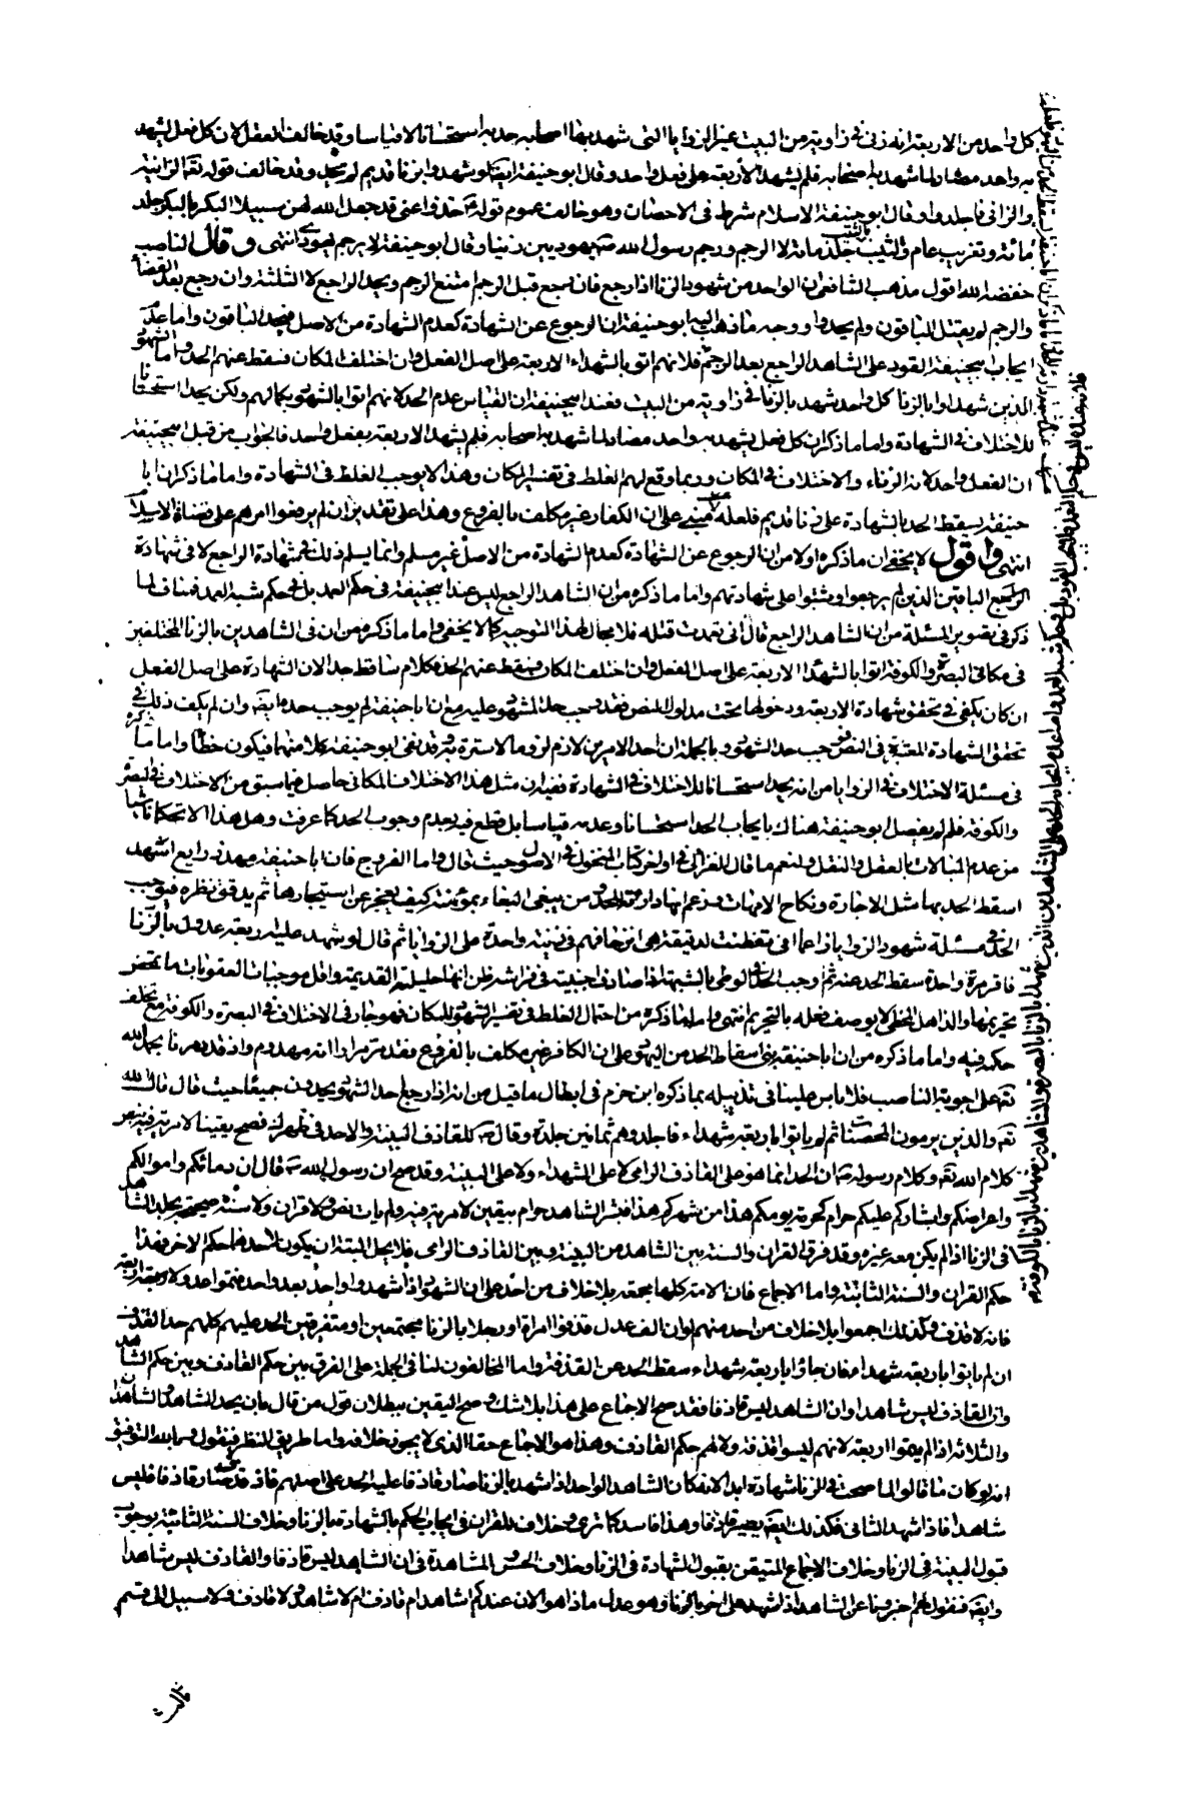 كل واحد من الاربعة انه زنى فى زاوية من البيت غير الزوايا التى شهد بها اصحابه حد به استحسانا لا قياسا وقد خالف العقل لان كل فعل يشهد
به واحد مضاد لما شهد به اصحابه فلم يشهد الأربعة على فعل واحد وقال ابو حنيفة ايضا لو شهدوا بزنا قديم لم يحد وقد خالف قوله تعه الزانية
والزانى فاجلدوا وقال ابو حنيفة الاسلام شرط فى الاحصان وهو خالف عموم قوله ع خذوا عنى قد جعل الله لهن سبيلا البكر بالبكر جلد
مائة وتغريب عام والثيب بالثيب جلد مائة والرجم ورجم رسول الله ص يهوديين زنيا وقال ابو حنيفة لا يرجم اليهودى انتهى وقال الناصب
خفضه الله اقول مذهب الشافعى ان الواحد من شهود الزنا اذا رجع فان رجع قبل الرجم امتنع الرجم ويحد الراجع لا الثلثة وان رجع بعد القضا
والرجم لم يقتل الباقون ولم يحدوا ووجه ما ذهب اليه ابو حنيفة ان الرجوع عن الشهادة كعدم الشهادة من الاصل فيحد الباقون واما عدم
ايجاب ابيحنيفة القود على الشاهد الراجع بعد الرجم فلانهم اتوا بالشهداء الاربعة على اصل الفعل وان اختلف المكان فسقط عنهم الحد واما الشهود
الذين شهدوا بالزنا كل واحد شهد بالزنا فى زاوية من البيت فعند ابيحنيفة ان القياس عدم الحد لانهم اتوا بالشهود بكمالهم ولكن يحد استحسانا
للاختلاف فى الشهادة واما ما ذكر ان كل فعل يشهد به واحد مضاد لما شهد به اصحابه فلم يشهد الاربعة بفعل واحد فالجواب من قبل ابيحنيفة
ان الفعل واحد لانه الزناء والاختلاف فى المكان وربما وقع لهم الغلط فى تفسير المكان وهذا لا يوجب الغلط فى الشهادة واما ما ذكر ان ابا
حنيفة يسقط الحد بالشهادة على زنا قديم فلعله مبنى على ان الكفار غير مكلف بالفروع وهذا على تقدير ان لم يرفعوا امرهم على قضاة الاسلام
انتهى واقول لا يخفى ان ما ذكره اولا من ان الرجوع عن الشهادة كعدم الشهادة من الاصل غير مسلم وانما يسلم ذلك فى شهادة الراجع لا فى شهادة
الراجع الباقين الذين لم يرجعوا وثبتوا على شهادتهم واما ما ذكره من ان الشاهد الراجع ليس عند ابيحنيفة فى حكم العمد بل فى حكم شبه العمد فمناف لما
ذكر فى تصوير المسئلة من ان الشاهد الراجع قال انى تعمدت قتله فلا مجال لهذا التوجيه كما لا يخفى واما ما ذكره من ان فى الشاهدين بالزنا المختلفين
فى مكانى البصرة والكوفة اتوا بالشهداء الاربعة على اصل الفعل وان اختلف المكان فيسقط عنهم الحد فكلام ساقط جدا لان الشهادة على اصل الفعل
ان كان يكفى فى تحقق شهادة الاربعة ودخولها تحت مدلول النص فقد وجب حد المشهود عليه مع ان ابا حنيفة لم يوجب حده ايضا وان لم يكف ذلك فى
تحقق الشهادة المعتبرة فى النص فوجب حد الشهود وبالجملة ان احد الامرين لازم لزوما لا سترة به وقد نفى ابو حنيفة كلا منهما فيكون خطأ واما ما ذكره
فى مسئلة الاختلاف فى الزوايا من انه يحد استحسانا للاختلاف فى الشهادة ففيه ان مثل هذا الاختلاف المكانى حاصل فيما سبق من الاختلاف فى البصرة
والكوفة فلم لم يفصل ابو حنيفة هناك بايجاب الحد استحسانا وعدمه قياسا بل قطع فيه بعدم وجوب الحد كما عرفت وهل هذا الا تحكما ناشيا
من عدم المبالاة بالعقل والنقل ولنعم ما قال الغزالى فى اواخر كتاب المنخول فى الاصول حيث قال واما الفروج فان ابا حنيفة مهد ذرايع اشهد
اسقط الحد بها مثل الاجارة ونكاح الامهات وزعم انها دارئة للحد ومن يبغى البغاء بمومسة كيف يعجز عن استيجارها ثم يدقق نظره فيوجب
الحد فى مسئلة شهود الزوايا زاعما انى تفطنت لدقيقة هى انزحافهم فى زنية واحدة على الزوايا ثم قال لو شهد عليه اربعة عدول بالزنا
فاقر مرة واحدة سقط الحد عنه ثم اوجب الحد فى الوطى بالشبهة اذا صادف اجنبية فى فراشه ظن انها حليلته القديمة واقل موجبات العقوبات ما تمحض
تحريمها والذاهل المخطى لا يوصف فعله بالتحريم انتهى واما ما ذكره من احتمال الغلط فى تفسير الشهود للمكان فهو جار فى الاختلاف فى البصرة والكوفة مع تخلف
حكمه فيه واما ما ذكره من ان ابا حنيفة بنى اسقاط الحد من اليهود على ان الكافر غير مكلف بالفروع فقد مر مرارا انه مهدوم واذ قد بهرنا بحمد الله
تعه على اجوبة الناصب فلا باس علينا فى تذييله بما ذكره ابن حزم فى ابطال ما قيل من انه اذا رجع احد الشهود يحدون جميعا حيث قال قال الله
تعه والذين يرمون المحصنات ثم لم ياتوا باربعة شهداء فاجلدوهم ثمانين جلدة وقال ص للقاذف البينة والا حد فى ظهرك فصح يقينا لا مرية فيه بنص
كلام الله تعه وكلام رسوله ص ان الحد انما هو على القاذف الرامى لا على الشهداء ولا على البينة وقد صح ان رسول الله ص قال ان دمائكم واموالكم
واعراضكم وابشاركم عليكم حرام كحرمة يومكم هذا من شهركم هذا فبشر الشاهد حرام بيقين لا مرية فيه ولم يات نص قران ولا سنة صحيحة بجلد الشاهد
فى الزنا اذا لم يكن معه غيره وقد فرق القران والسنة بين الشاهد من البينة وبين القاذف الرامى فلا يحل البتة ان يكون لاحدهما حكم الاخر فهذا
حكم القران والسنة الثابتة واما الاجماع فان الامة كلها مجمعة بلا خلاف من احد على ان الشهود اذا شهدوا واحدا بعد واحد فتموا عدولا اربعة
فانه لا قذف وكذلك اجمعوا بلا خلاف من احد منهم لو ان الف عدل قذفوا امراة او رجلا بالزنا مجتمعين او متفرقين الحد عليهم كلهم حد القذف
ان لم ياتوا باربعة شهداء فان جاؤا باربعة شهداء سقط الحد عن القذفة واما المخالفون لنا فى الجملة على الفرق بين حكم القاذف وبين حكم الشاهد
وان القاذف ليس شاهدا وان الشاهد ليس قاذفا فقد صح الاجماع على هذا بلا شك وصح اليقين ببطلان قول من قال بان يحد الشاهد والشاهدان
والثلاثة اذا لم يتموا اربعة لانهم ليسوا قذفة ولا لهم حكم القاذف وهذا هو الاجماع حقا الذى لا يجوز خلافه واما طريق النظر فيقول وبالله التوفيق
انه لو كان ما قالوا لما صحت فى الزنا شهادة ابدا لانه كان الشاهد الواحد اذا شهد بالزنا صار قاذفا عليه الحد على اصلهم فاذ قد صار قاذفا فليس
شاهدا فاذا شهد الثانى فكذلك ايضا يصير قاذفا وهذا فاسد كما ترى وخلاف للقران فى ايجاب الحكم بالشهادة بالزنا وخلاف السنة الثابتة بوجوب
قبول البينة فى الزنا وخلاف الاجماع المتيقن بقبول الشهادة فى الزنا وخلاف الحس والمشاهدة فى ان الشاهد ليس قاذفا والقاذف ليس شاهدا
وايضا فنقول لهم اخبرونا عن الشاهد اذا شهد على اخر بالزنا وهو عدل ماذا هو الان عندكم اشاهد ام قاذف ام لا شاهد ولا قاذف ولا سبيل الى قسم
ثالث